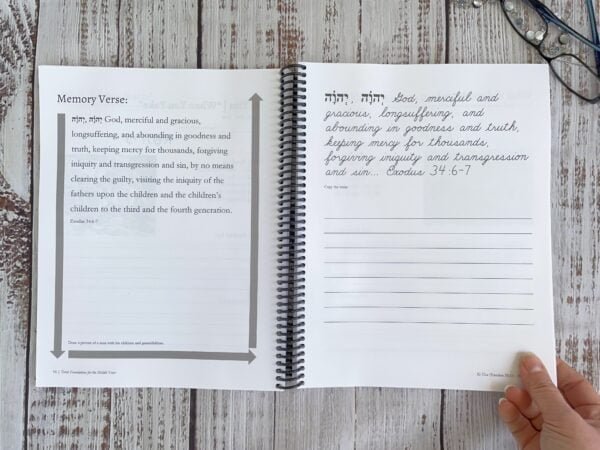 Memory Verse:
יְהֹוָה, יְהֹוָה God, merciful and gracious,
longsuffering, and abounding in goodness and
truth, keeping mercy for thousands, forgiving
iniquity and transgression and sin, by no means
clearing the guilty, visiting the iniquity of the
fathers upon the children and the children's
children to the third and the fourth generation.
Exodus 34:6-7
Draw a picture of a man with his children and grandchildren.
Torah Foundations for the Middle Years
יְהֹוָה, יְהֹוָה God, merciful and
gracious, longsuffering, and
abounding in goodness and truth,
keeping mercy for thousands,
forgiving iniquity and transgression
and sin... Exodus 34:6-7
Copy the verse.